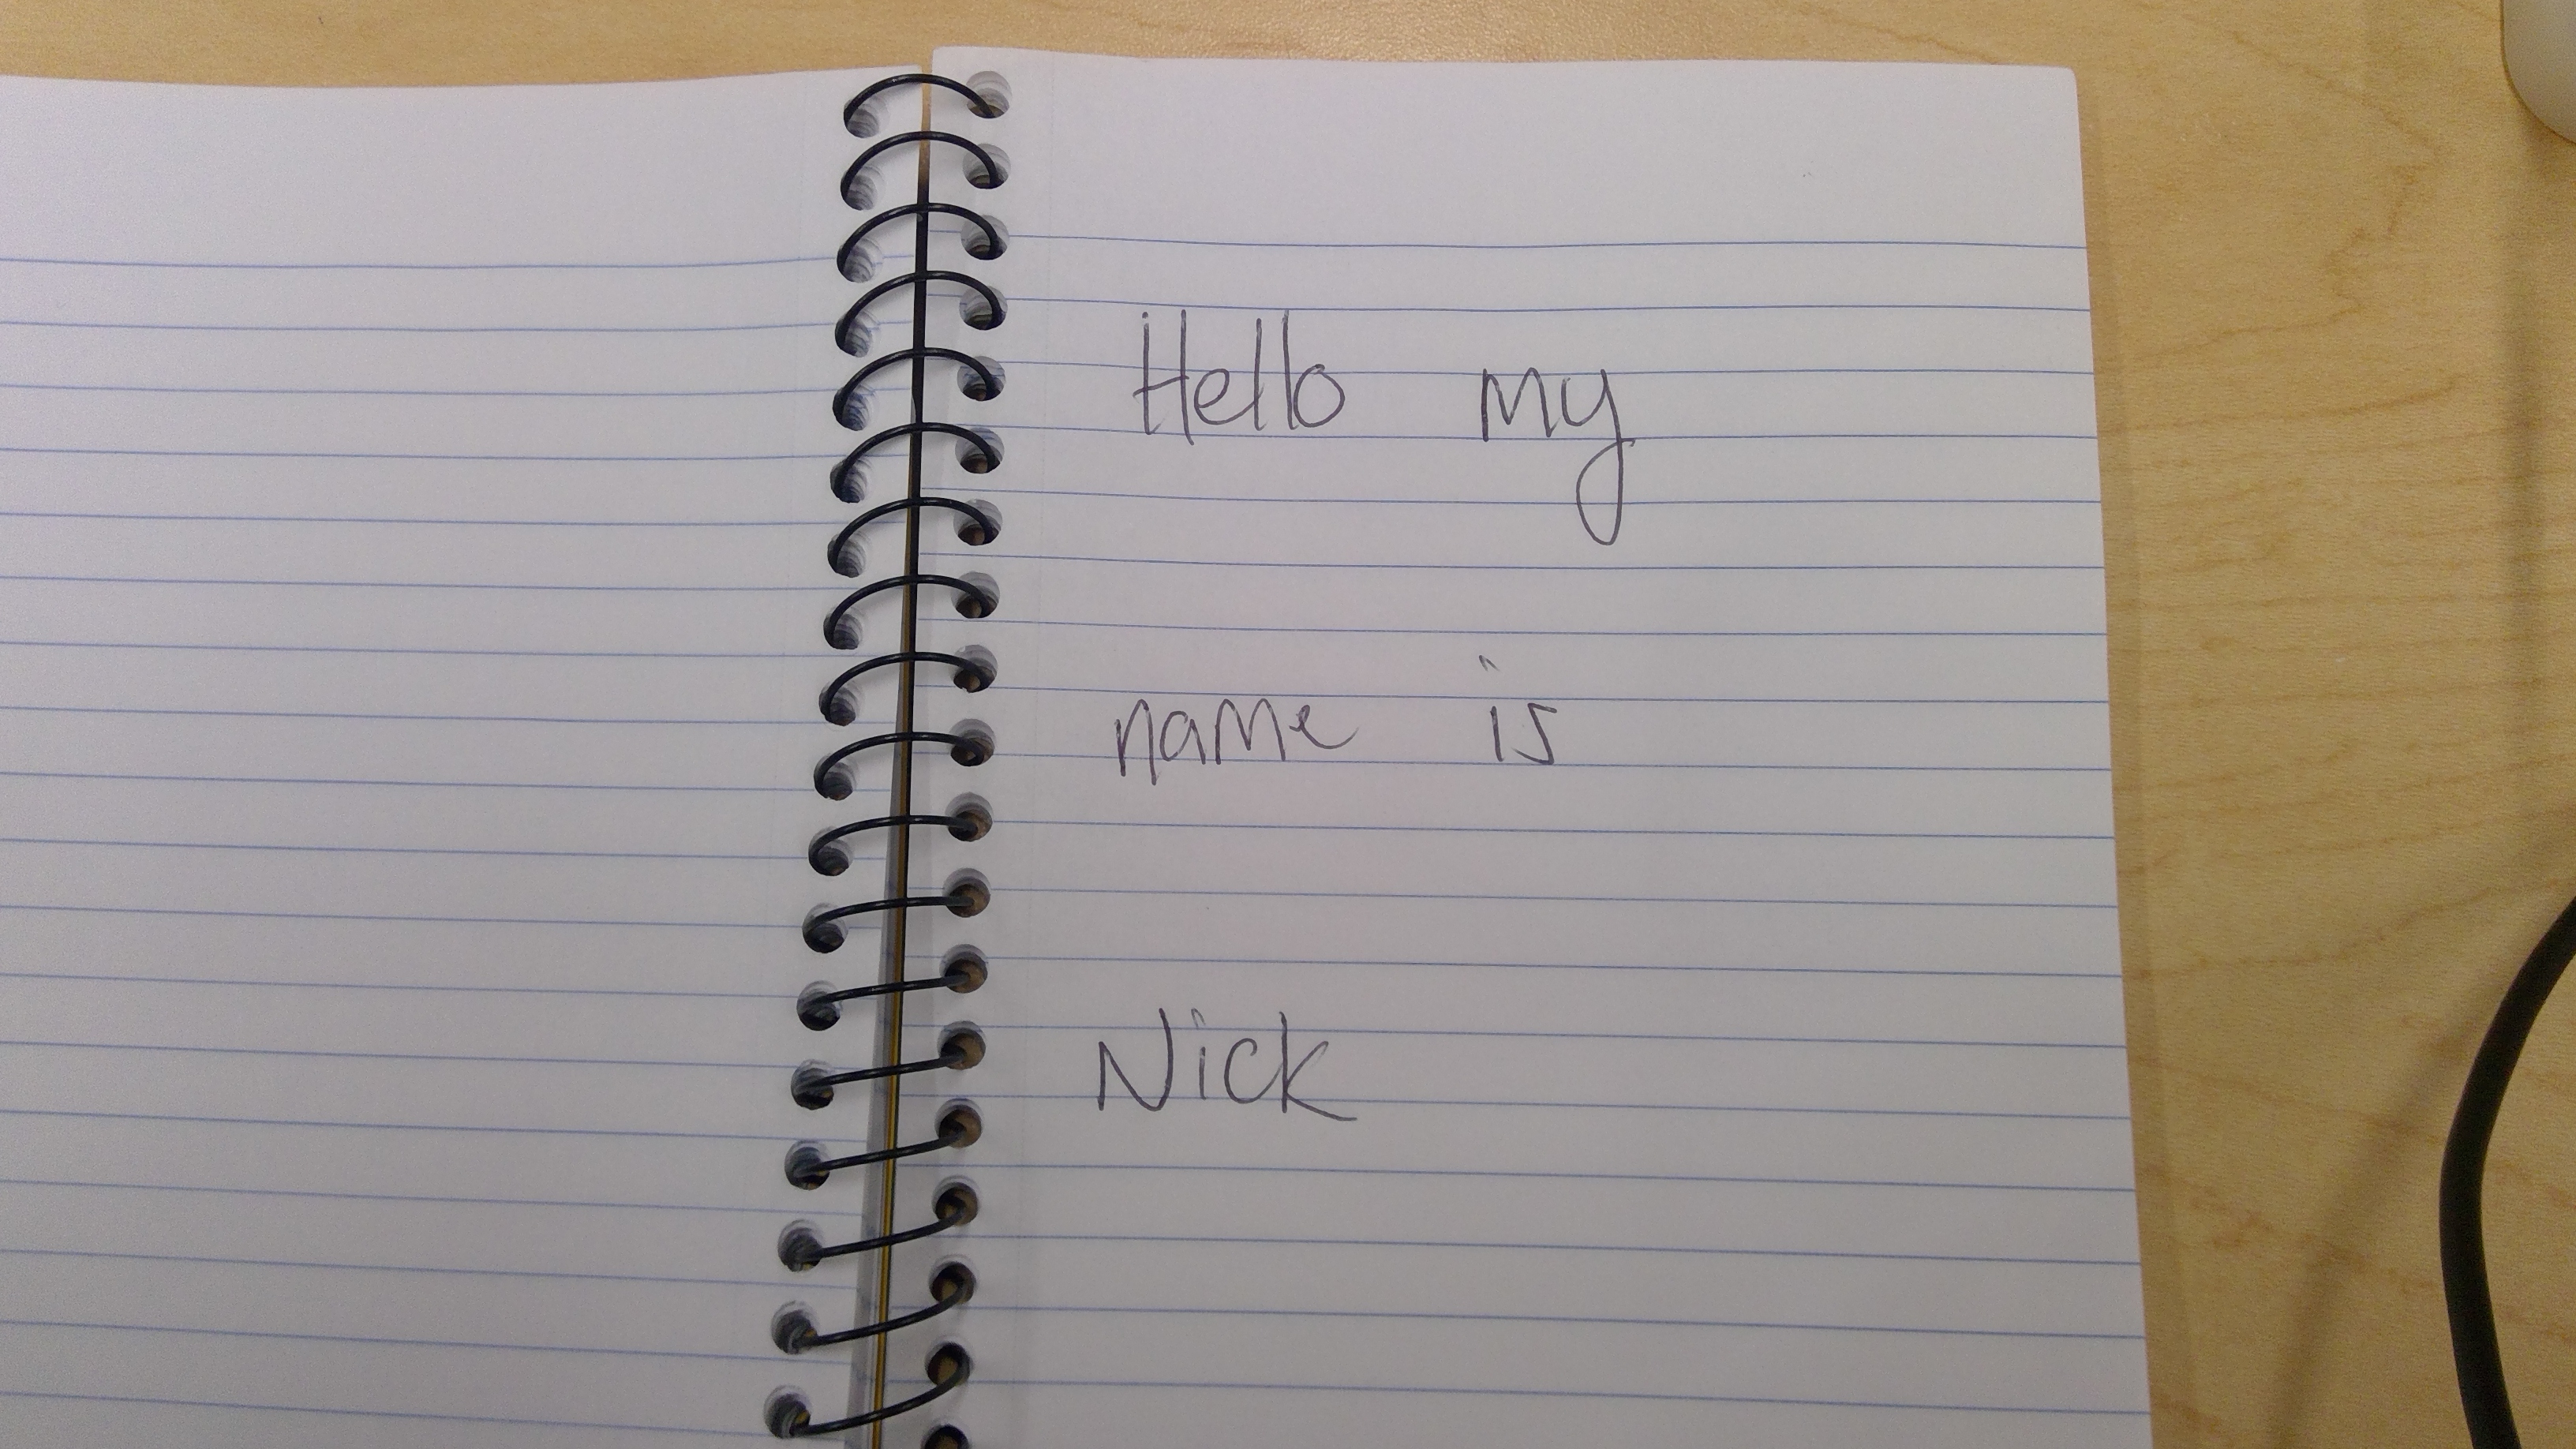 Hello my
name is
Nick